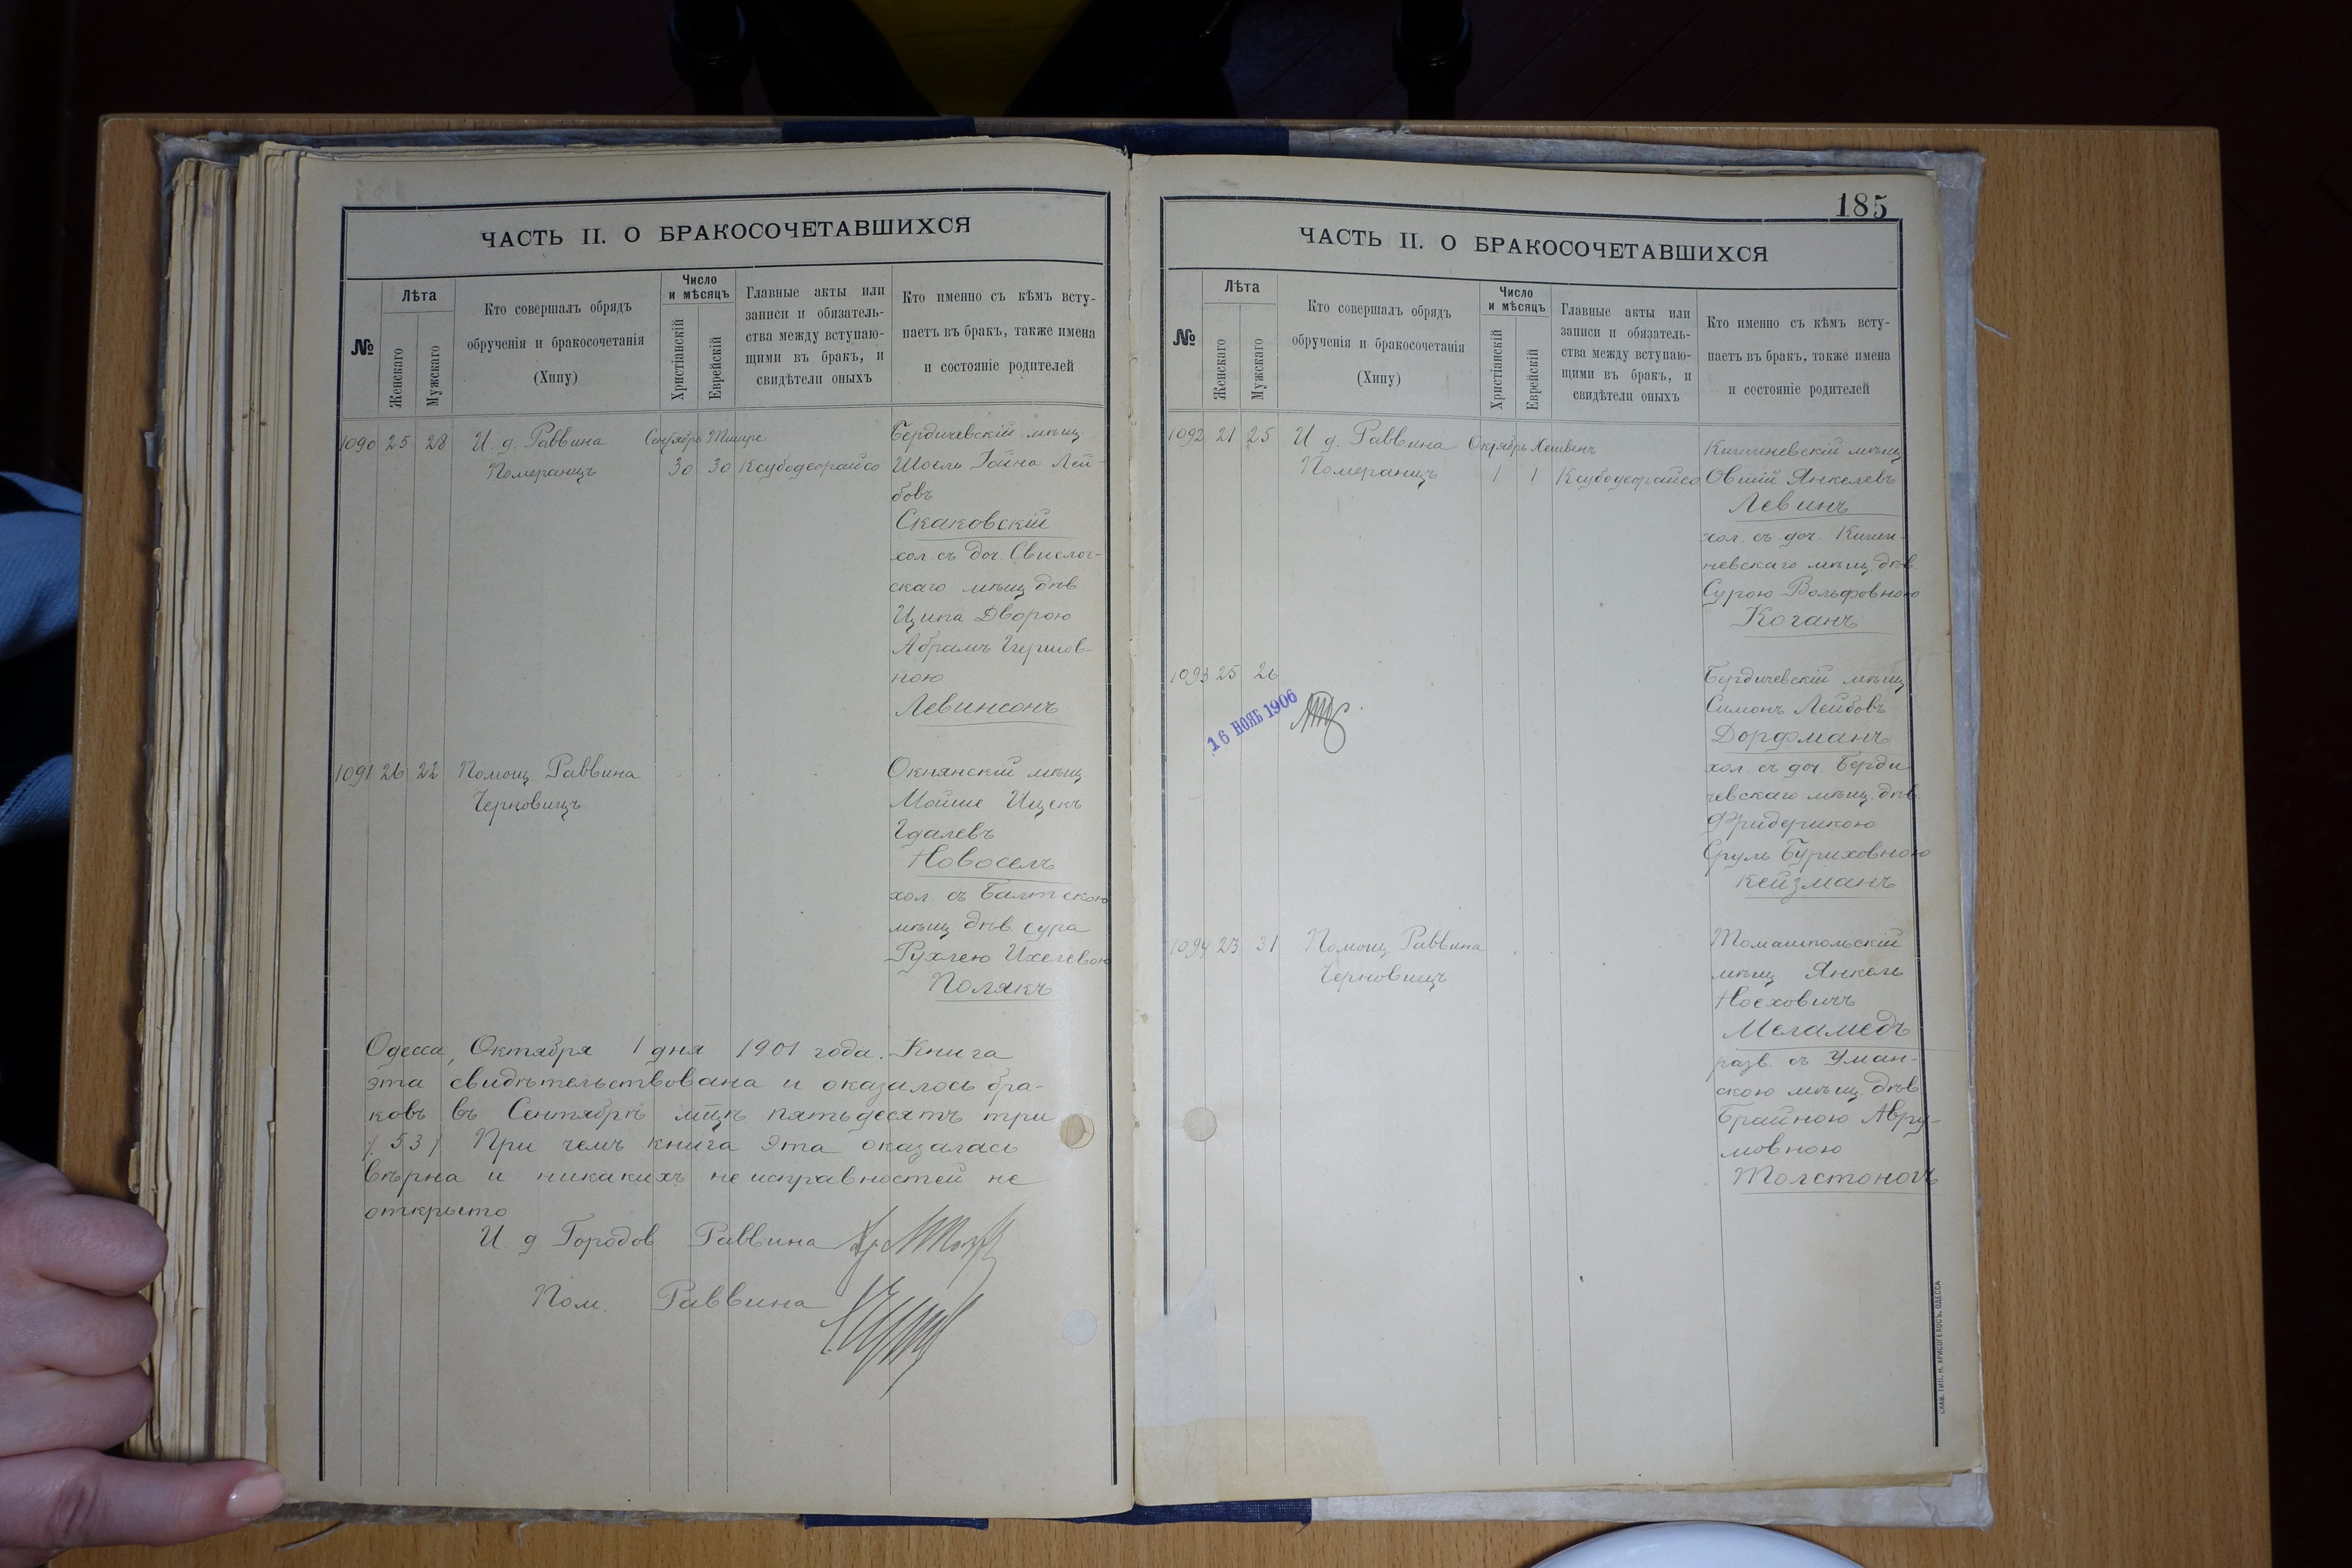 ЧАСТЬ II. О БРАКОСОЧЕТАВШИХСЯ
№
Лѣта
Женскаго
Мужскаго
Кто совершалъ обрядъ
обрученія и бракосочетанія
(Хипу)
Число
и мѣсяцъ
Христіанскій
Еврейскій
Главные акты или
записи и обязатель-
ства между вступаю-
щими въ бракъ, и
свидѣтели оныхъ
Кто именно съ кѣмъ всту-
паетъ въ бракъ, также имена
и состояніе родителей
1090 25 28 И. д. Раввина Сентябрь Тишре
Померанцъ 30 30
Бердичевскій мѣщ
Шоель Іойна Лей-
бовъ
Скаковскій
хол. съ доч. Свислоч-
скаго мѣщ. дѣв
Ципа Дворою
Абрамъ Гершов-
ною
Левинсонъ
1091 26 22 Помощ. Раввина
Черновицъ
Окнянскій мѣщ
Мойше Ицекъ
Гдалевъ
Новоселъ
хол. съ Балтскою
мѣщ. дѣв. Сура
Рухлею Ихелевою
Полякъ
Одесса, Октября 1 дня 1901 года. Книга
эта свидѣтельствована и оказалось бра-
ковъ въ Сентябрѣ мцѣ пятьдесятъ три
/. 53 /. При чемъ книга эта оказалась
вѣрна и никакихъ неисправностей не
открыто
И. д. Городов Раввина
Пом. Раввина
185
ЧАСТЬ II. О БРАКОСОЧЕТАВШИХСЯ
№
Лѣта
Женскаго
Мужскаго
Кто совершалъ обрядъ
обрученія и бракосочетанія
(Хипу)
Число
и мѣсяцъ
Христіанскій
Еврейскій
Главные акты или
записи и обязатель-
ства между вступаю-
щими въ бракъ, и
свидѣтели оныхъ
Кто именно съ кѣмъ всту-
паетъ въ бракъ, также имена
и состояніе родителей
1092 21 25 И. д. Раввина Октябрь Хешвенъ
Померанцъ 1 1
Кишиневскій мѣщ
Овшій Янкелевъ
Левинъ
хол. съ доч. Киши-
невскаго мѣщ. дѣв.
Сурою Вольфовною
Коганъ
1093 25 26
16 НОЯБ 1906
Бердичевскій мѣщ
Симонъ Лейбовъ
Дорфманъ
хол. съ доч. Берди
чевскаго мѣщ. дѣв.
Фридерикою
Сруль Буриховною
Кейзманъ
1094 23 31 Помощ. Раввина
Черновицъ
Томашпольскій
мѣщ Янкель
Ноеховичъ
Меламедъ
разв. съ Уман-
скою мѣщ. дѣв
Брайною Авру-
мовною
Толстоногъ
СЛАВ. ТИП. Н. ХРИСОГЕЛОСЪ, ОДЕССА